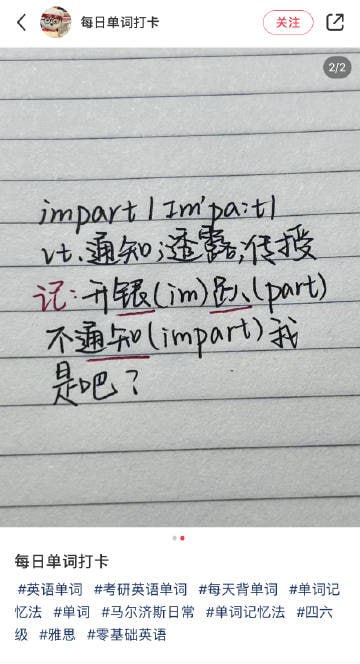 每日单词打卡
关注
2/2
impart | Im'pa:t|
vt.通知;透露,传授
记:开银(im)趴(part)
不通知(impart)我
是吧?
每日单词打卡
#英语单词 #考研英语单词 #每天背单词 #单词记
忆法 #单词 #马尔济斯日常 #单词记忆法 #四六
级 #雅思 #零基础英语